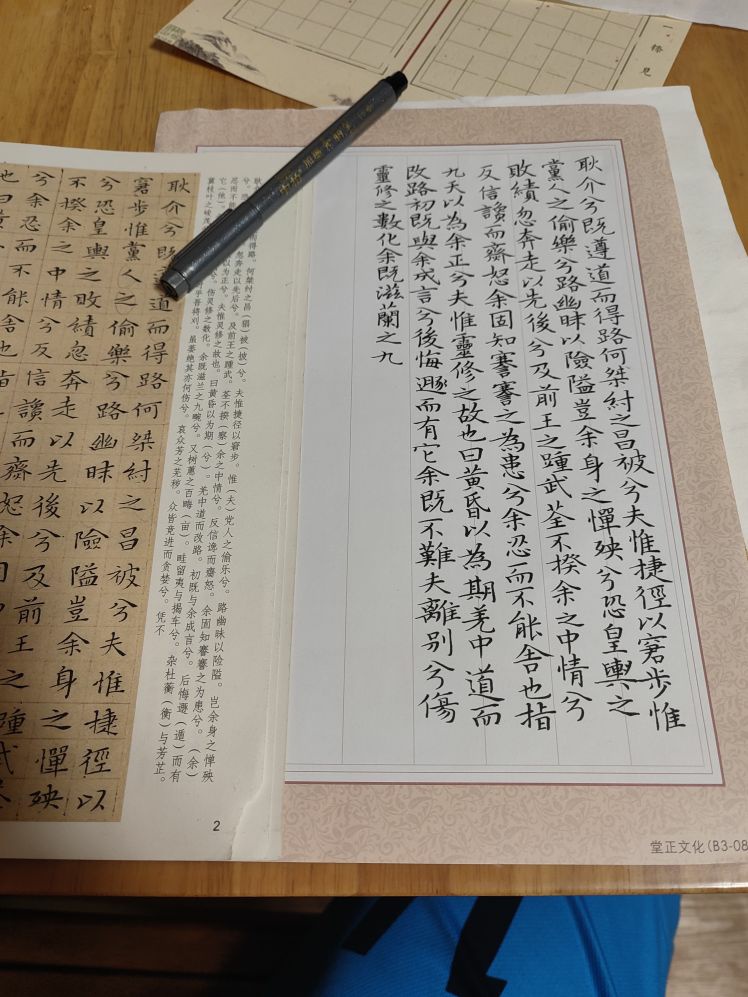 一 格 見
耿介兮既遵道而得路何桀紂之昌被兮夫惟捷徑以窘步惟
黨人之偷樂兮路幽昧以險隘豈余身之憚殃兮恐皇輿之
敗績忽奔走以先後兮及前王之踵武荃不揆余之中情兮
反信讒而齋怒余固知謇謇之為患兮余忍而不能舍也指
九天以為余正兮夫惟靈修之故也曰黃昏以為期羌中道而
改路初既與余成言兮後悔遯而有它余既不難夫離別兮傷
靈修之數化余既滋蘭之九
堂正文化(B3-08
耿介 而得路。何桀纣之昌（猖）被（披）兮。夫惟捷径以窘步。惟（夫）党人之偷乐兮。路幽昧以险隘。岂余身之惮殃
兮。恐 忽奔走以先后兮。及前王之踵武。荃不揆（察）余之中情兮。反信谗而齌怒。余固知謇謇之为患兮。（余）
忍而不能 以为正兮。夫惟灵修之故也。曰黄昏以为期（兮）。羌中道而改路。初既与余成言兮。后悔（遁）而有
它（他）。 兮。伤灵修之数化。余既滋兰之九畹兮。又树蕙之百晦（亩）。畦留夷与揭车兮。杂杜蘅（衡）与芳芷。
冀枝叶之峻茂 乎吾将刈。虽萎绝其亦何伤兮。哀众芳之芜秽。众皆竞进而贪婪兮。凭不
2
耿介兮既 道而得路何桀紂之昌被兮夫惟捷徑以
窘步惟黨人之偷樂兮路幽昧以險隘豈余身之憚殃
兮恐皇輿之敗績忽奔走以先後兮及前王之踵武
不揆余之中情兮反信讒而齋怒余
兮余忍而不能舍也指
也曰